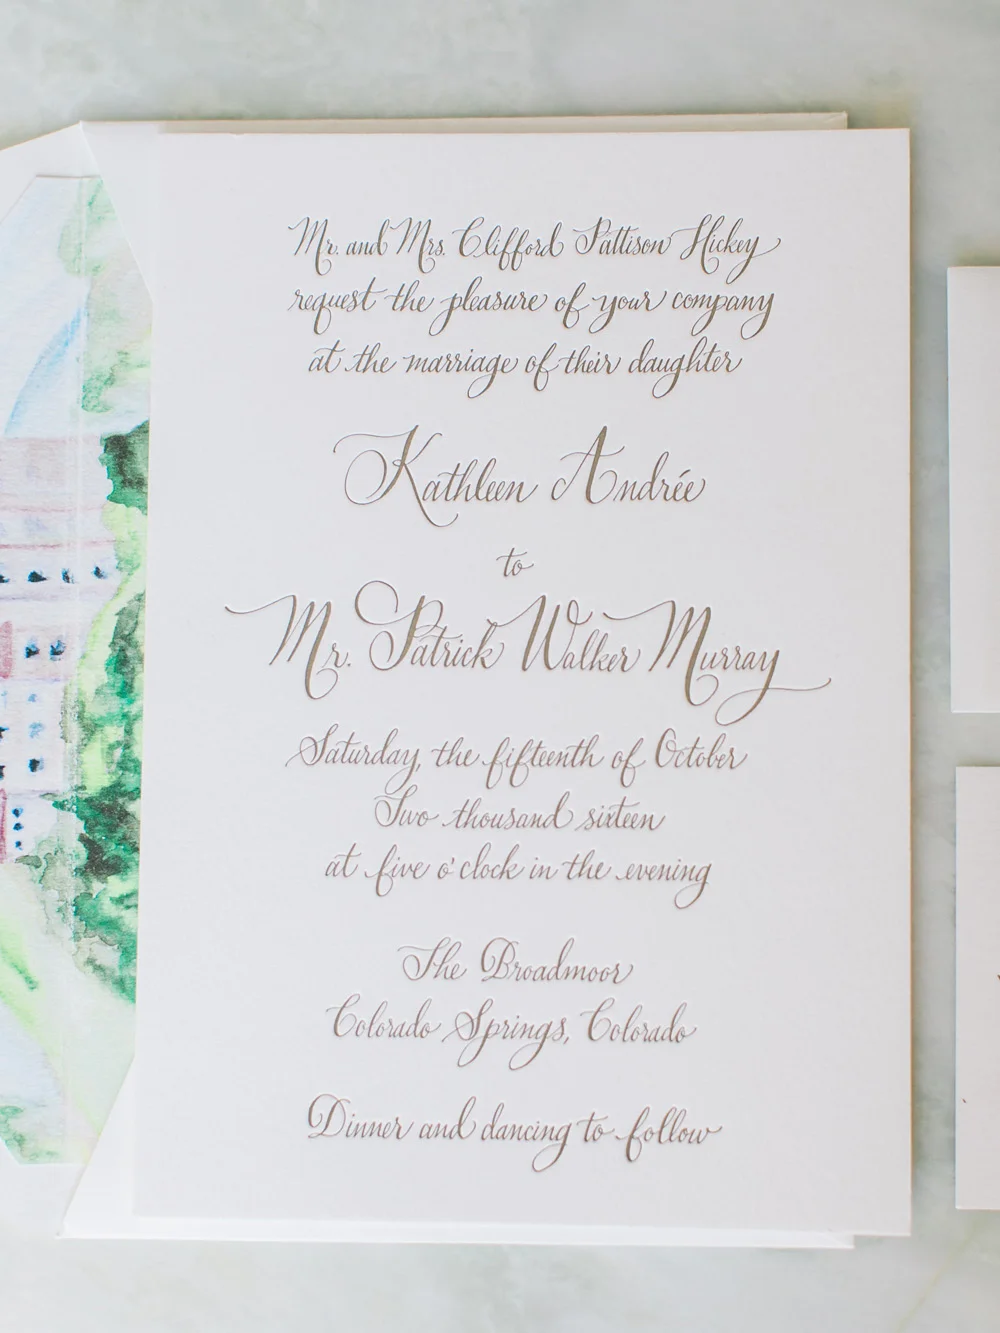 Mr. and Mrs. Clifford Pattison Hickey
request the pleasure of your company
at the marriage of their daughter
Kathleen Andrée
to
Mr. Patrick Walker Murray
Saturday, the fifteenth of October
Two thousand sixteen
at five o'clock in the evening
The Broadmoor
Colorado Springs, Colorado
Dinner and dancing to follow